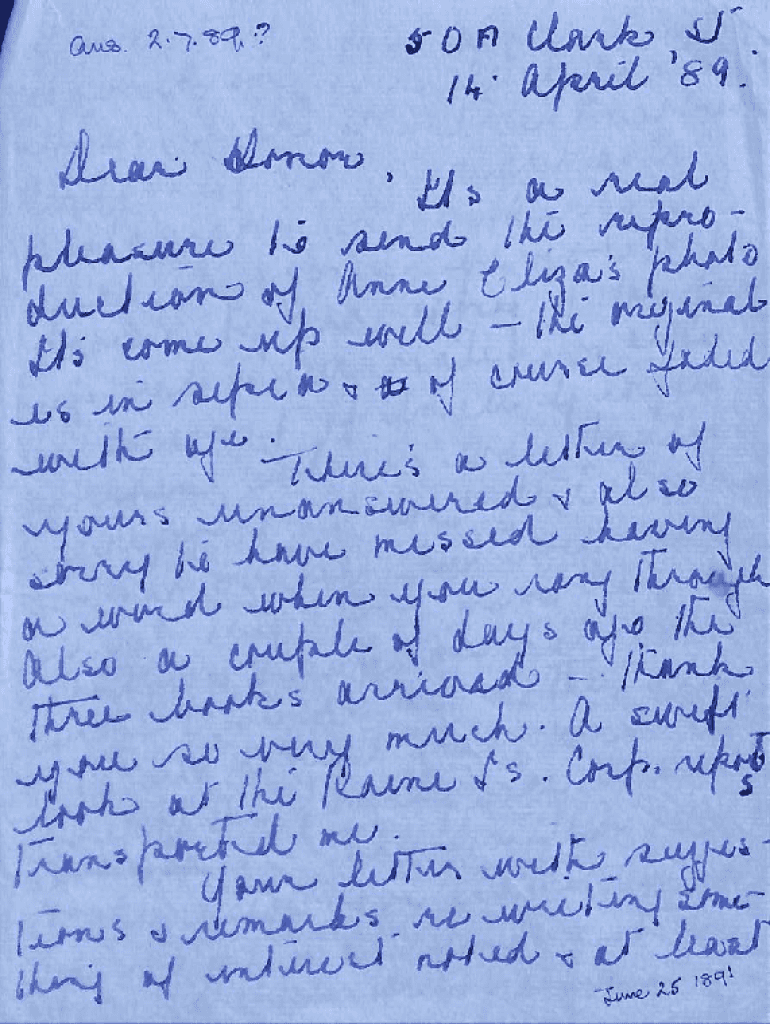 Ans. 2.7.89.?
50A Clark St
14 April '89.
Dear Honor,
Its a real
pleasure to send the repro-
duction of Anne Eliza's photo
Its come up well – the original
is in sepia & of course faded
with age.
There's a letter of
yours unanswered & also
sorry to have missed having
a word when you rang through
Also a couple of days ago the
three books arrived – thank
you so very much. A swift
look at the Raine Is. Corp. reports
transported me.
Your letter with sugges-
tions & remarks re writing some-
thing of interest noted & at least
June 25 '89!